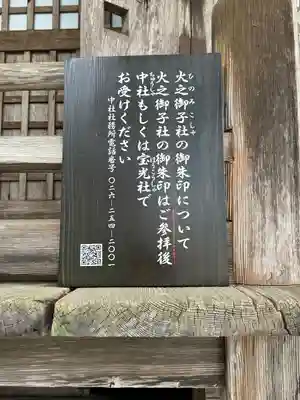 火之御子社の御朱印について
火之御子社の御朱印はご参拝後
中社もしくは宝光社で
お受けください
中社社務所電話番号 〇二六ー二五四ー二〇〇一